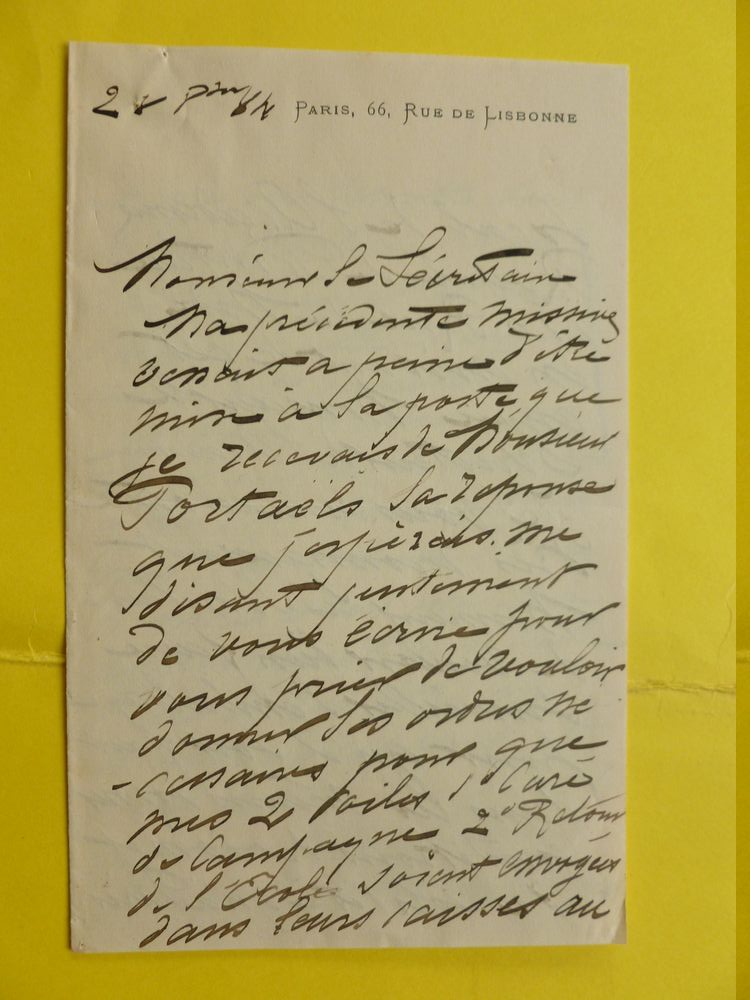 PARIS, 66, RUE DE LISBONNE
Monsieur le Secrétaire
Ma précédente missive
venait a peine d'être
mise à la poste que
je recevais de Monsieur
Portaëls la réponse
que j'espérais me
disant justement
de vous écrire pour
vous prier de vouloir
donner les ordres né
-cessaires pour que
mes 2 toiles 1° Curé
de Campagne 2° Retour
de l'Ecole soient envoyées
dans leurs caisses au